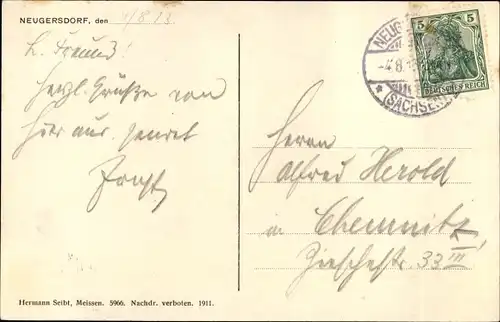 NEUGERSDORF, den 4/8.13
L. Freund!
Herzl. Grüße von
hier aus sendet
Ernst
5 5
DEUTSCHES REICH
NEUG
-4.8.13
* (SACHSEN)
Herrn
Alfred Herold
in Chemnitz
Zieschestr. 33 III
Hermann Seibt, Meissen. 5966. Nachdr. verboten. 1911.